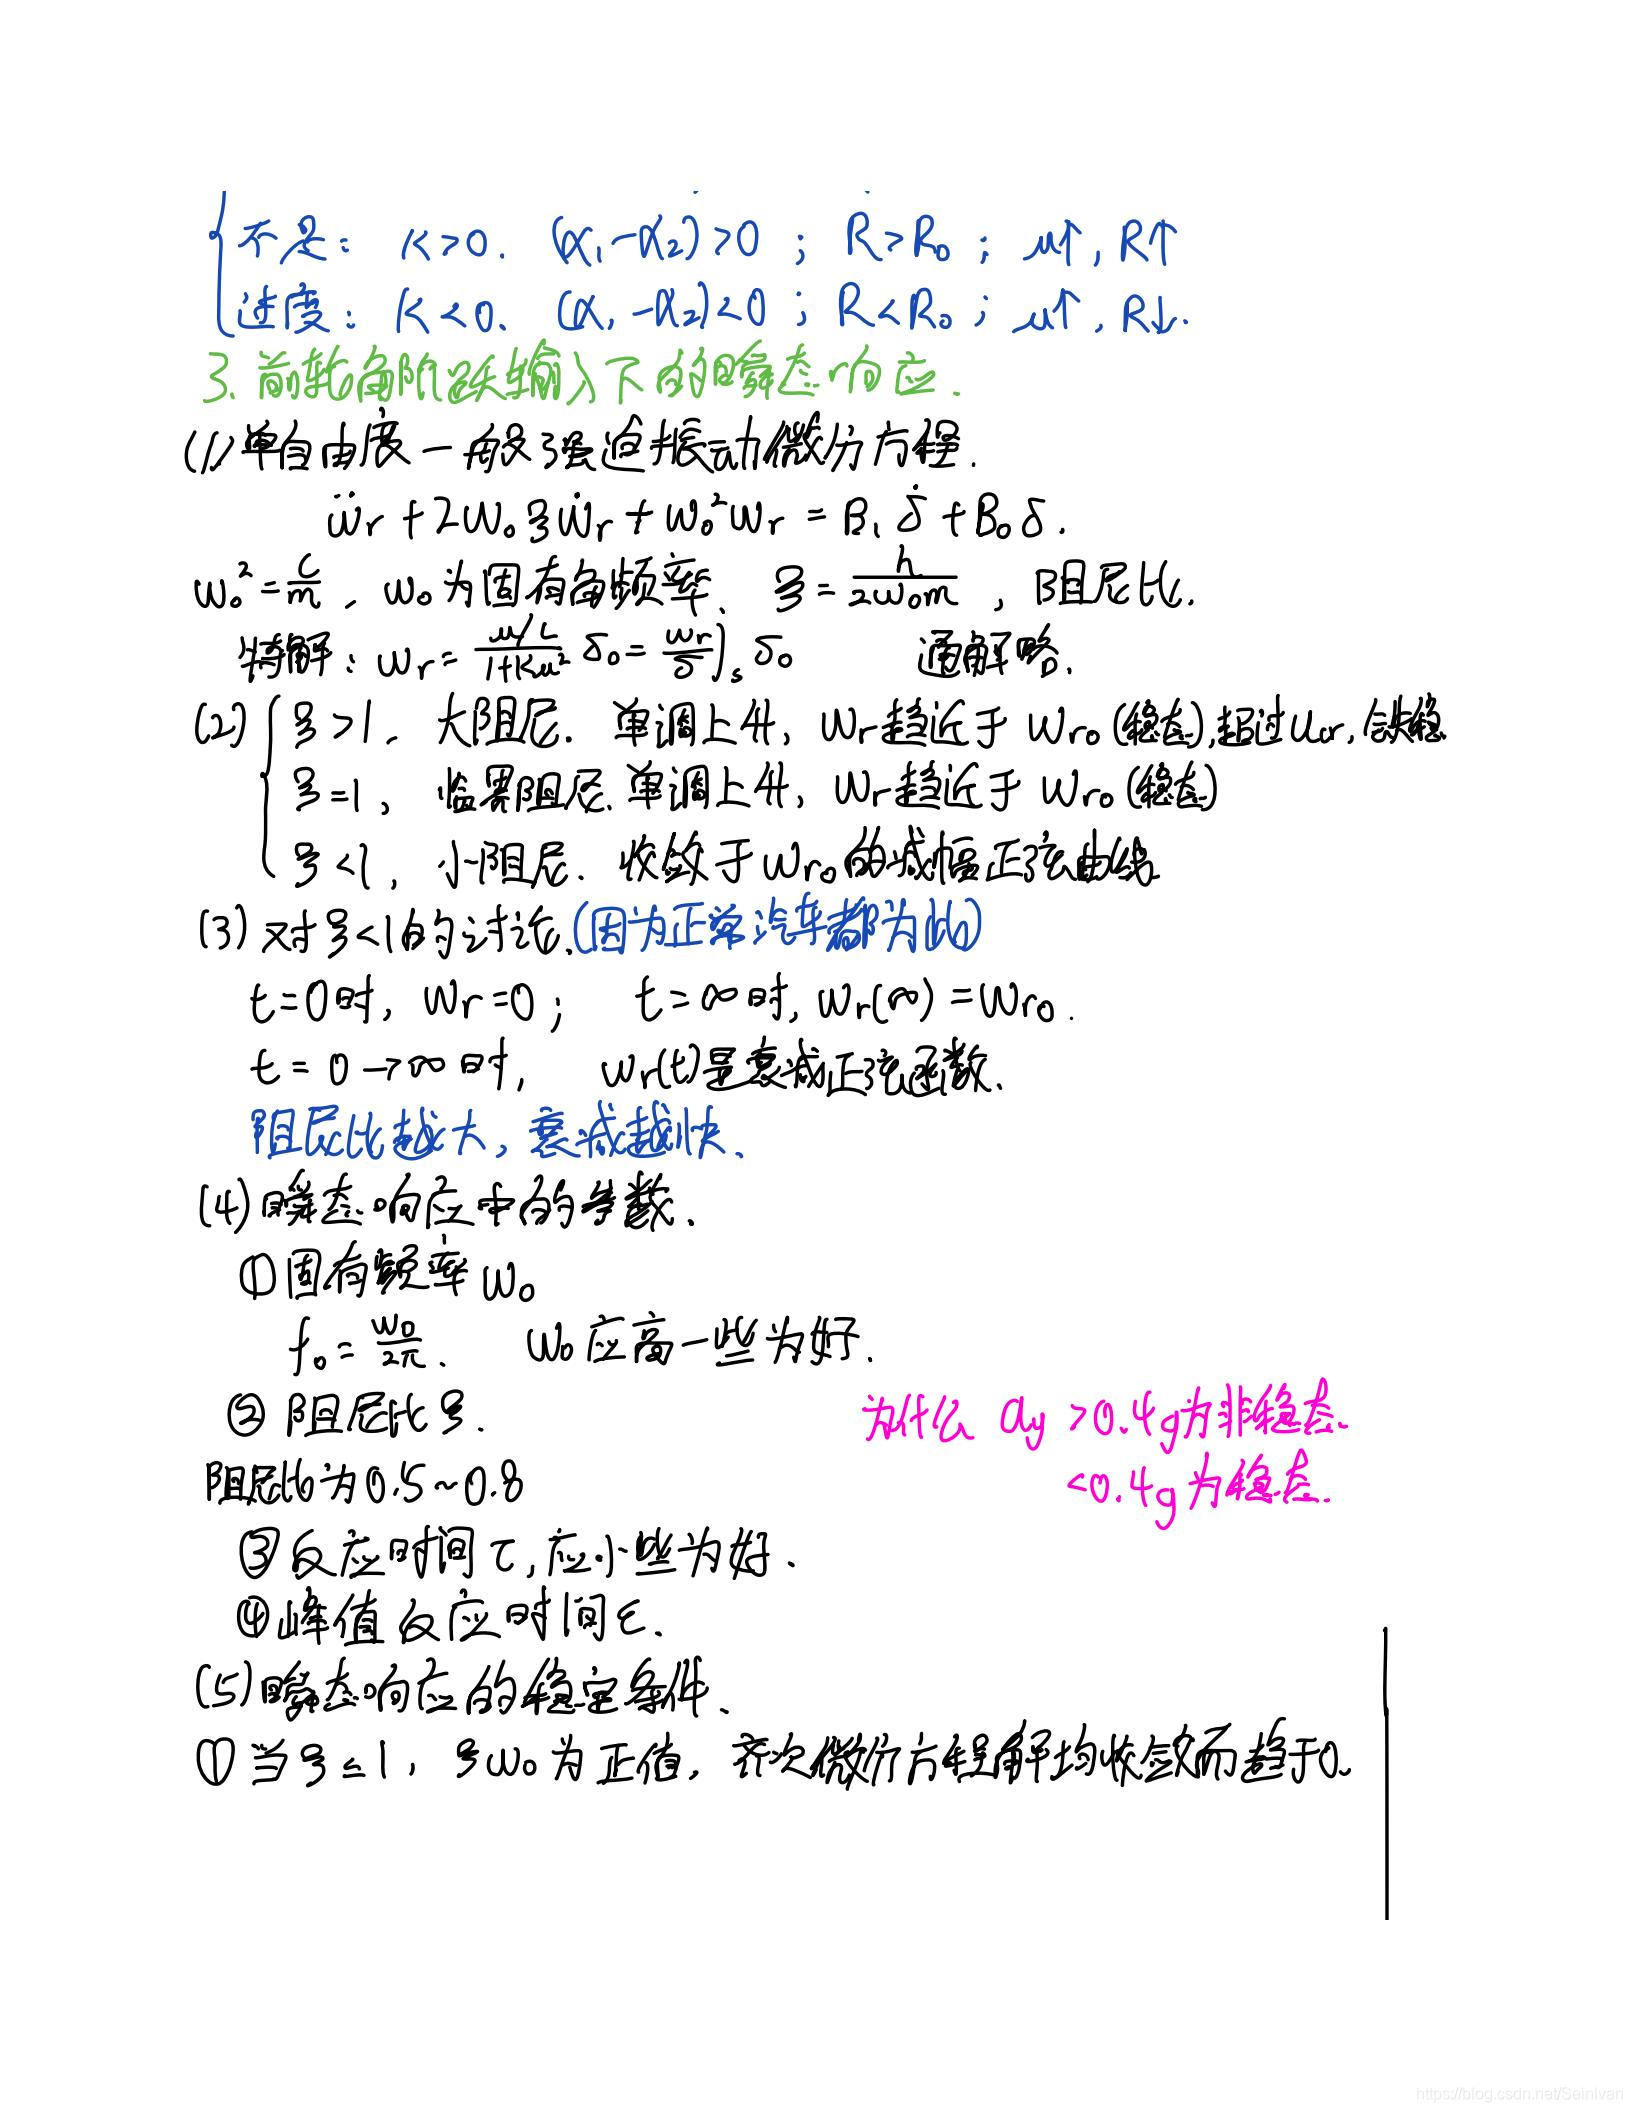 不是: K>0. (α₁-α₂)>0 ; R>R₀ ; u↑, R↑
过度: K<0. (α₁-α₂)<0 ; R<R₀ ; u↑, R↓.
3. 前轮角阶跃输入下的瞬态响应.
(1) 单自由度一般强迫振动微分方程.
ẅr + 2w₀ξẇr + w₀²wr = B₁δ̇ + B₀δ.
w₀² = c/m , w₀为固有角频率. ξ = h/2w₀m , 阻尼比.
特解: wr = (u/L)/(1+Ku²) δ₀ = wr/δ)s δ₀ 通解略.
(2) ξ>1. 大阻尼. 单调上升, wr趋近于 wr₀(稳态), 超过ucr, 会失稳
ξ=1, 临界阻尼. 单调上升, wr趋近于 wr₀(稳态)
ξ<1, 小阻尼. 收敛于wr₀的减幅正弦曲线
(3) 对ξ<1的讨论.(因为正常汽车都为此)
t=0时, wr=0; t=∞时, wr(∞)=wr₀.
t=0→∞时, wr(t)是衰减正弦函数.
阻尼比越大, 衰减越快.
(4) 瞬态响应中的参数.
①固有频率w₀
f₀ = w₀/2π. w₀应高一些为好.
② 阻尼比ξ.
为什么 ay >0.4g为非稳态.
阻尼比为0.5~0.8
<0.4g为稳态.
③反应时间τ, 应小些为好.
④峰值反应时间ε.
(5)瞬态响应的稳定条件.
①当ξ≤1, ξw₀为正值, 齐次微分方程解均收敛而趋于0.
https://blog.csdn.net/SeinIvan